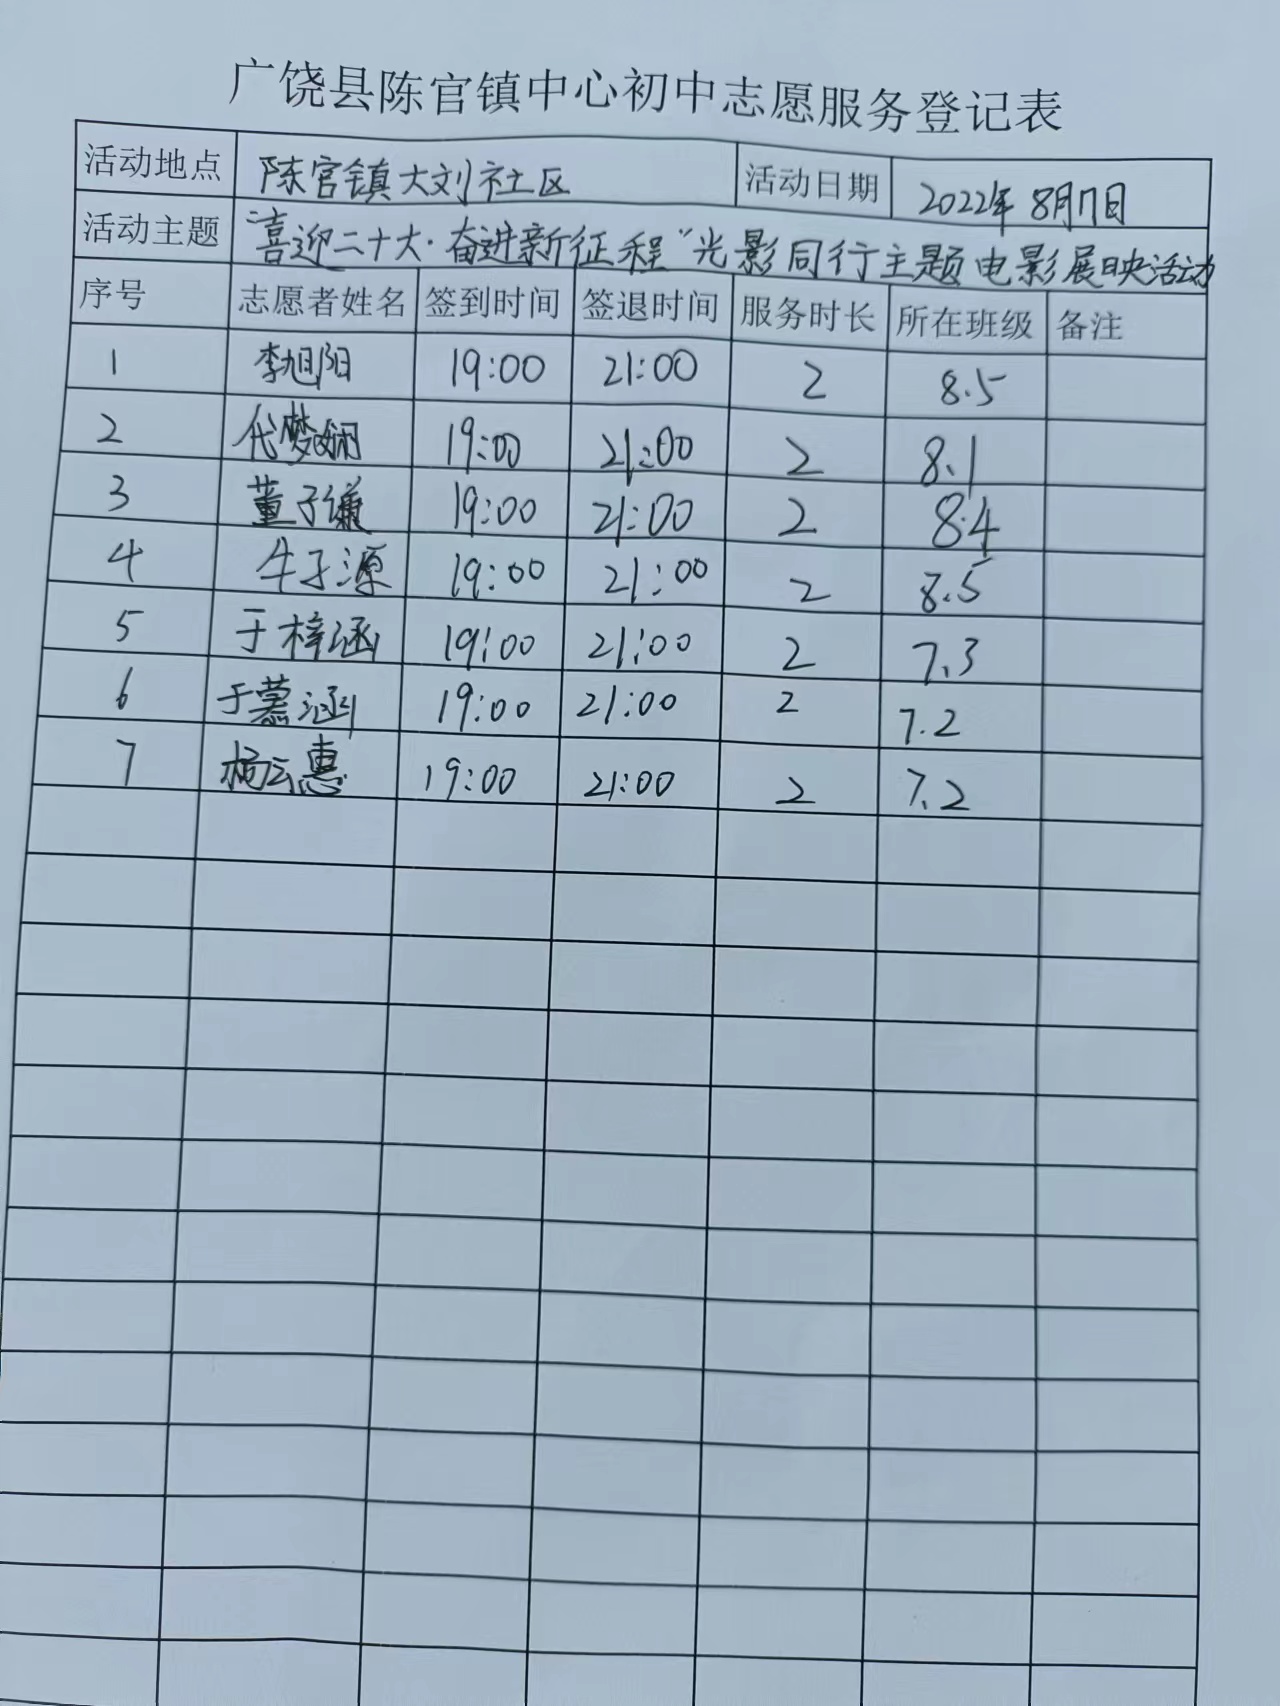 广饶县陈官镇中心初中志愿服务登记表
活动地点 陈官镇大刘社区 活动日期 2022年8月7日
活动主题 “喜迎二十大·奋进新征程”光影同行主题电影展映活动
序号 志愿者姓名 签到时间 签退时间 服务时长 所在班级 备注
1 李旭阳 19:00 21:00 2 8.5
2 代梦娴 19:00 21:00 2 8.1
3 董子谦 19:00 21:00 2 8.4
4 牛子源 19:00 21:00 2 8.5
5 于梓涵 19:00 21:00 2 7.3
6 于慕涵 19:00 21:00 2 7.2
7 杨云惠 19:00 21:00 2 7.2